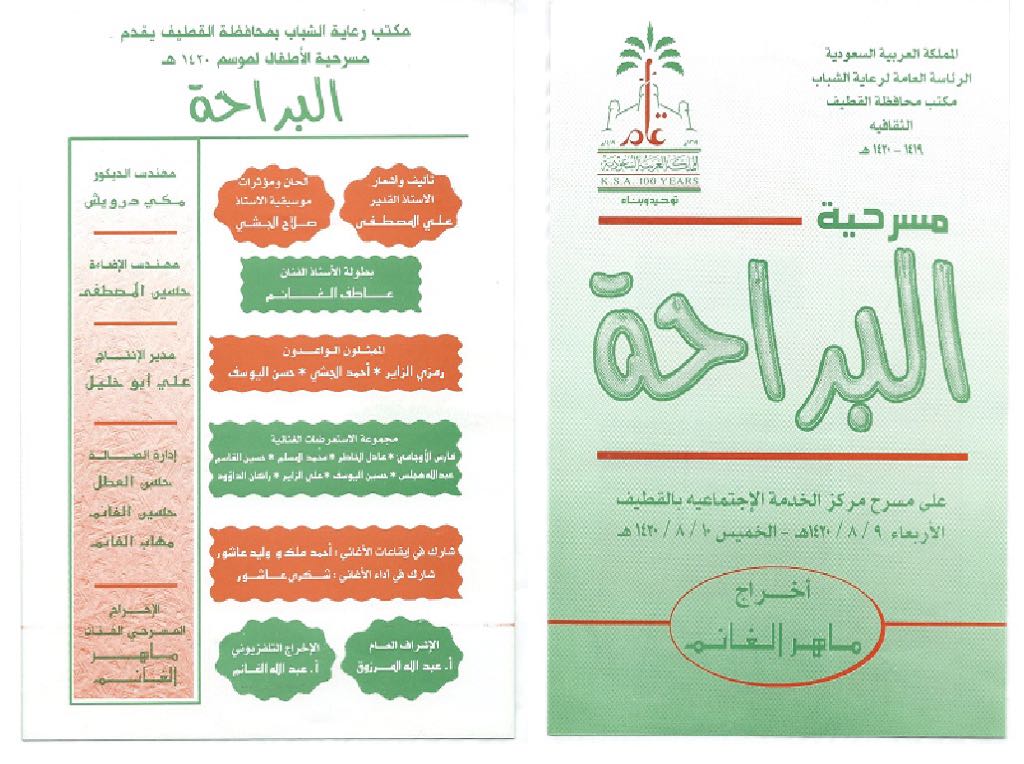 المملكة العربية السعودية
الرئاسة العامة لرعاية الشباب
مكتب محافظة القطيف
الثقافيه
١٤١٩ - ١٤٢٠ هـ
عام
المملكة العربية السعودية
K.S.A. 100 YEARS
توحيد وبناء
مسرحية
البراحة
على مسرح مركز الخدمة الإجتماعيه بالقطيف
الأربعاء ٩ / ٨ / ١٤٢٠هـ - الخميس ١٠ / ٨ / ١٤٢٠ هـ
أخراج
ماهر الغانم
مكتب رعاية الشباب بمحافظة القطيف يقدم
مسرحية الأطفال لموسم ١٤٢٠ هـ
البراحة
تأليف واشعار
الأستاذ القدير
علي المصطفى
الحان ومؤثرات
موسيقية الاستاذ
صلاح الجشي
بطولة الأستاذ الفنان
عاطف الغانم
الممثلون الواعدون
رمزي الزاير * أحمد الجشي * حسن اليوسف
مجموعة الاستعرضات الغنائية
فارس الأوجامي * عادل الخاطر * محمد المسلم * حسين القاسم
عبدالله هجلس * حسين اليوسف * علي الزاير * راكان الداوود
شارك في إيقاعات الأغاني : أحمد ملك و وليد عاشور
شارك في أداء الأغاني : شكري عاشور
الإشراف العام
أ. عبد الله المرزوق
الإخراج التلفزيوني
أ. عبد الله الغانم
مهندس الديكور
مكي درويش
مهندس الإضاءة
حسين المصطفى
مدير الإنتاج
علي أبو خليل
إدارة الصالة
حسن العطل
حسين الغانم
مهاب الغانم
الإخراج
المسرحي الفنان
ماهر
الغانم